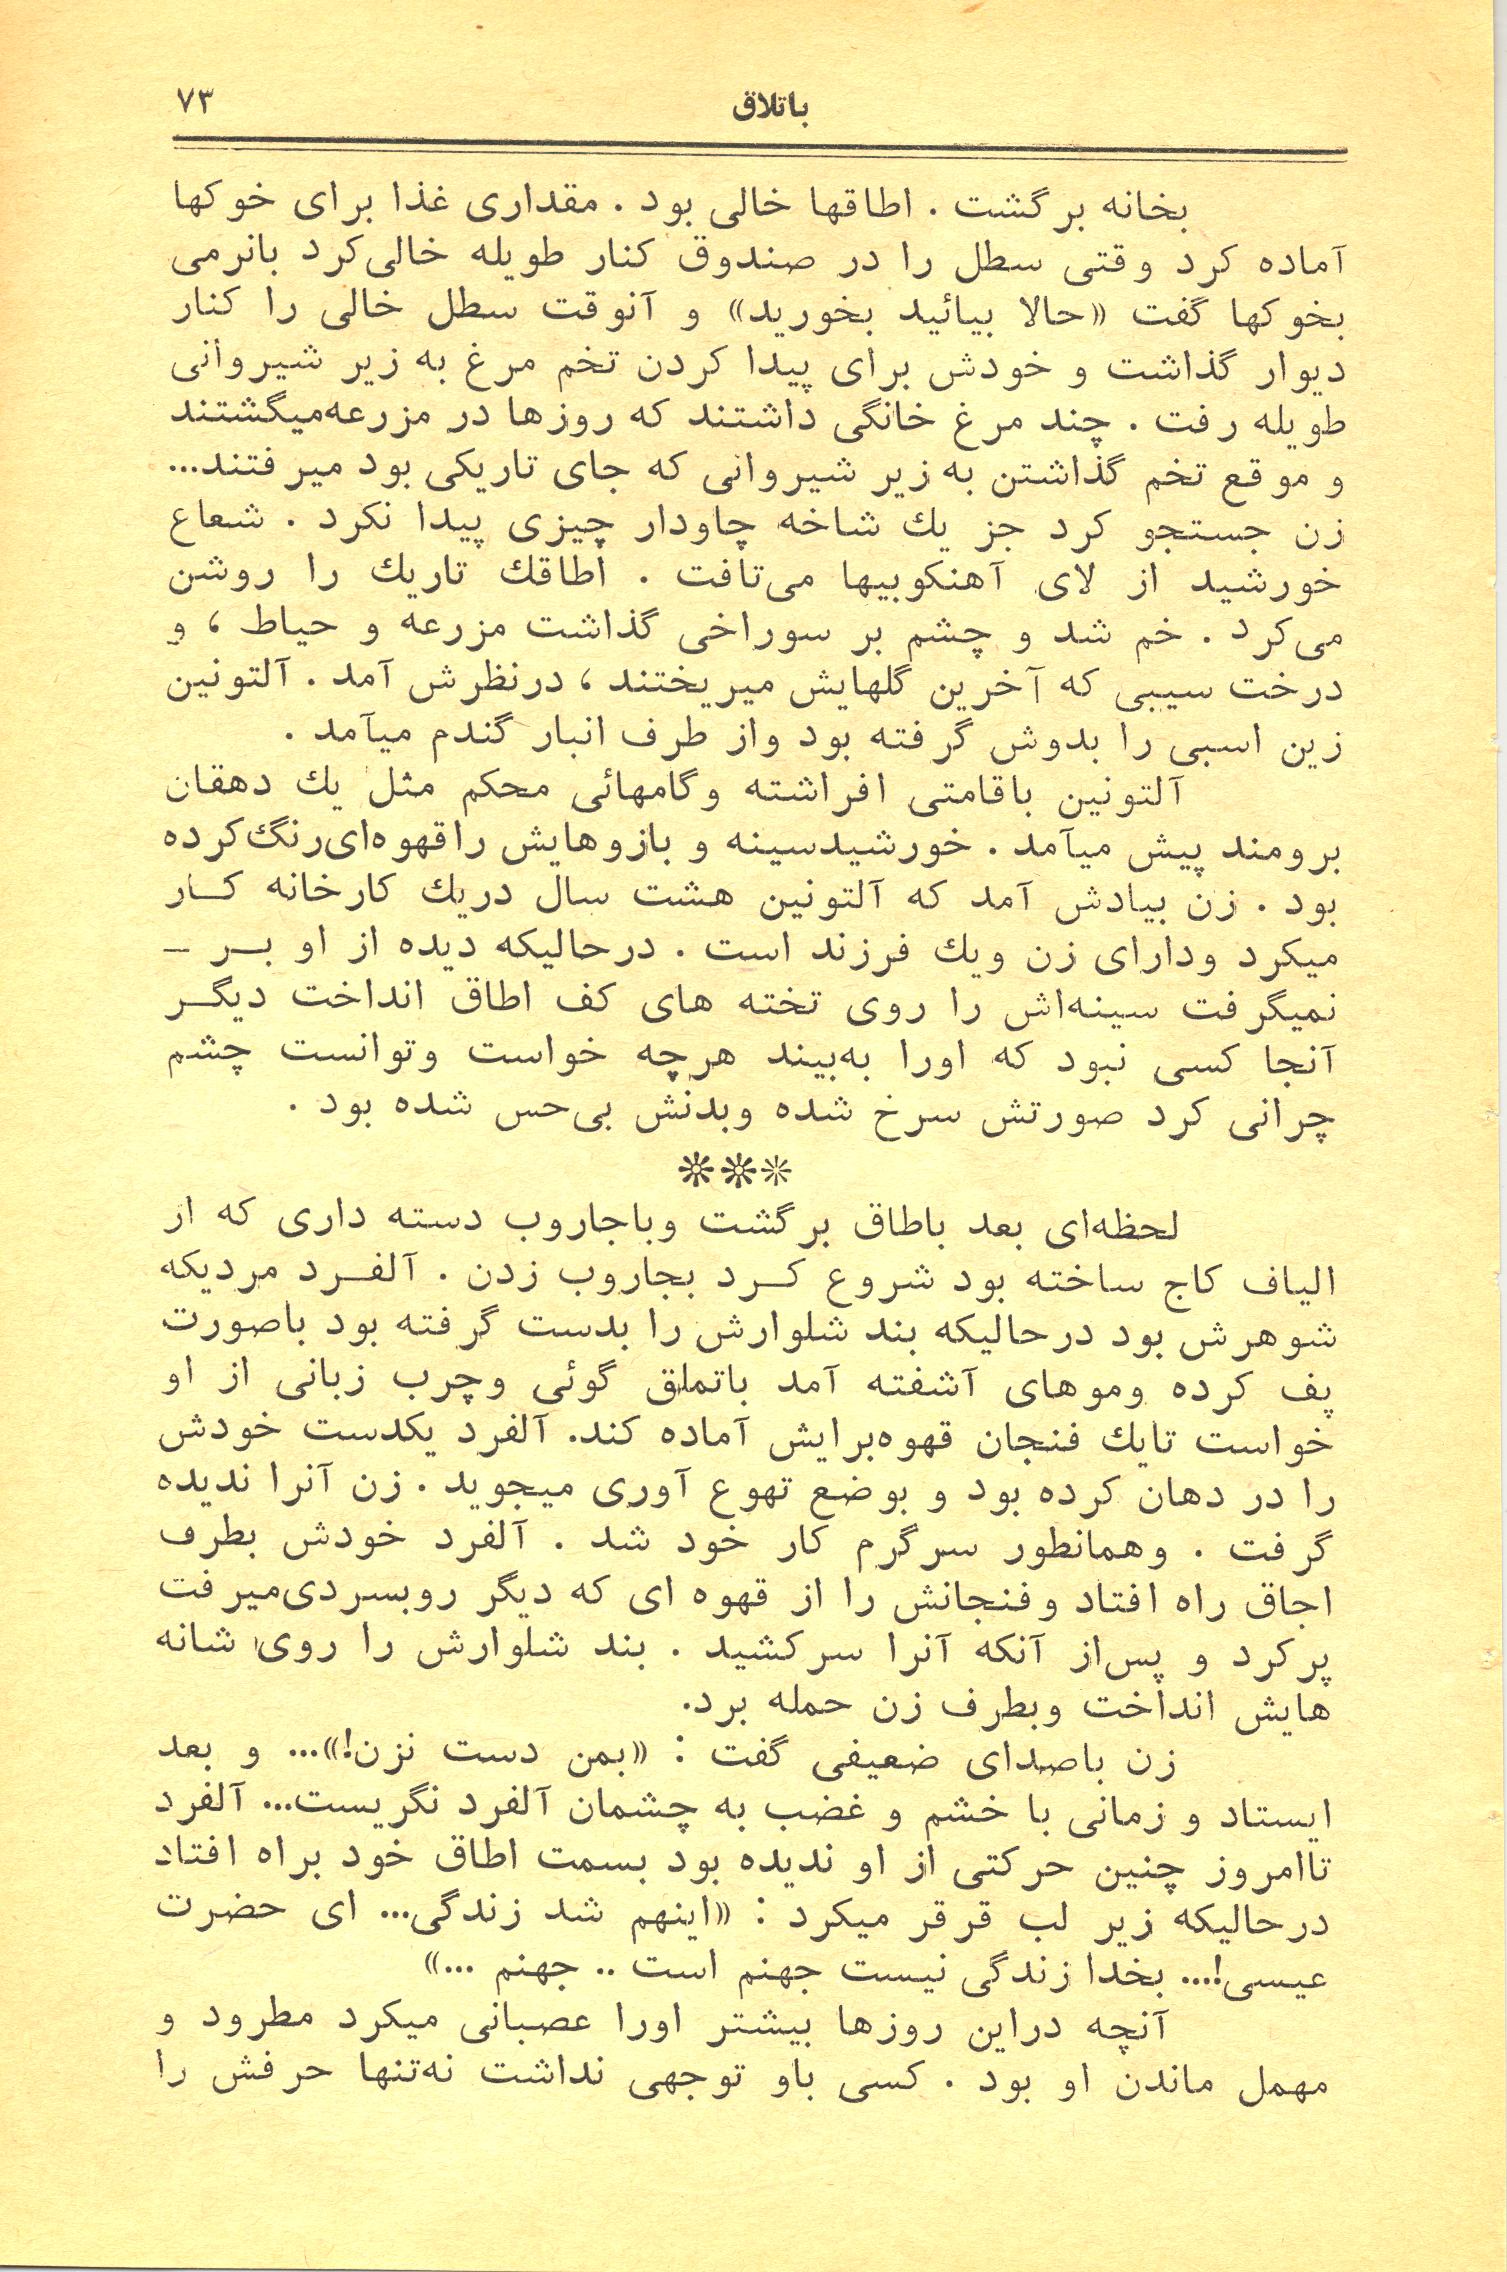 باتلاق ۷۳
بخانه برگشت . اطاقها خالی بود . مقداری غذا برای خوکها
آماده کرد وقتی سطل را در صندوق کنار طویله خالی‌کرد بانرمی
بخوکها گفت «حالا بیائید بخورید» و آنوقت سطل خالی را کنار
دیوار گذاشت و خودش برای پیدا کردن تخم مرغ به زیر شیروانی
طویله رفت . چند مرغ خانگی داشتند که روزها در مزرعه‌میگشتند
و موقع تخم گذاشتن به زیر شیروانی که جای تاریکی بود میرفتند...
زن جستجو کرد جز یك شاخه چاودار چیزی پیدا نکرد . شعاع
خورشید از لای آهنکوبیها می‌تافت . اطاقك تاریك را روشن
می‌کرد . خم شد و چشم بر سوراخی گذاشت مزرعه و حیاط ، و
درخت سیبی که آخرین گلهایش میریختند ، درنظرش آمد . آلتونین
زین اسبی را بدوش گرفته بود واز طرف انبار گندم میآمد .
آلتونین باقامتی افراشته وگامهائی محکم مثل یك دهقان
برومند پیش میآمد . خورشیدسینه و بازوهایش راقهوه‌ای‌رنگ‌کرده
بود . زن بیادش آمد که آلتونین هشت سال دریك کارخانه کـار
میکرد ودارای زن ویك فرزند است . درحالیکه دیده از او بـر ـ
نمیگرفت سینه‌اش را روی تخته های کف اطاق انداخت دیگـر
آنجا کسی نبود که اورا به‌بیند هرچه خواست وتوانست چشم
چرانی کرد صورتش سرخ شده وبدنش بی‌حس شده بود .
***
لحظه‌ای بعد باطاق برگشت وباجاروب دسته داری که از
الیاف کاج ساخته بود شروع کـرد بجاروب زدن . آلفـرد مردیکه
شوهرش بود درحالیکه بند شلوارش را بدست گرفته بود باصورت
پف کرده وموهای آشفته آمد باتملق گوئی وچرب زبانی از او
خواست تایك فنجان قهوه‌برایش آماده کند. آلفرد یکدست خودش
را در دهان کرده بود و بوضع تهوع آوری میجوید . زن آنرا ندیده
گرفت . وهمانطور سرگرم کار خود شد . آلفرد خودش بطرف
اجاق راه افتاد وفنجانش را از قهوه ای که دیگر روبسردی‌میرفت
پرکرد و پس‌از آنکه آنرا سرکشید . بند شلوارش را روی شانه
هایش انداخت وبطرف زن حمله برد.
زن باصدای ضعیفی گفت : «بمن دست نزن!»... و بعد
ایستاد و زمانی با خشم و غضب به چشمان آلفرد نگریست... آلفرد
تاامروز چنین حرکتی از او ندیده بود بسمت اطاق خود براه افتاد
درحالیکه زیر لب قرقر میکرد : «اینهم شد زندگی... ای حضرت
عیسی!... بخدا زندگی نیست جهنم است .. جهنم ...»
آنچه دراین روزها بیشتر اورا عصبانی میکرد مطرود و
مهمل ماندن او بود . کسی باو توجهی نداشت نه‌تنها حرفش را